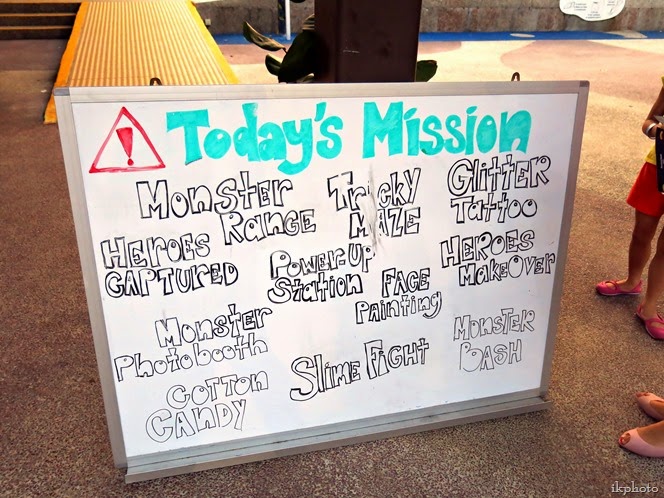 ! Today's Mission
Monster
Range
Tricky
Maze
Glitter
Tattoo
Heroes
Captured
Power Up
Station
Heroes
Makeover
Face
Painting
Monster
Photobooth
Slime Fight
Monster
Bash
Cotton
Candy
ikphoto